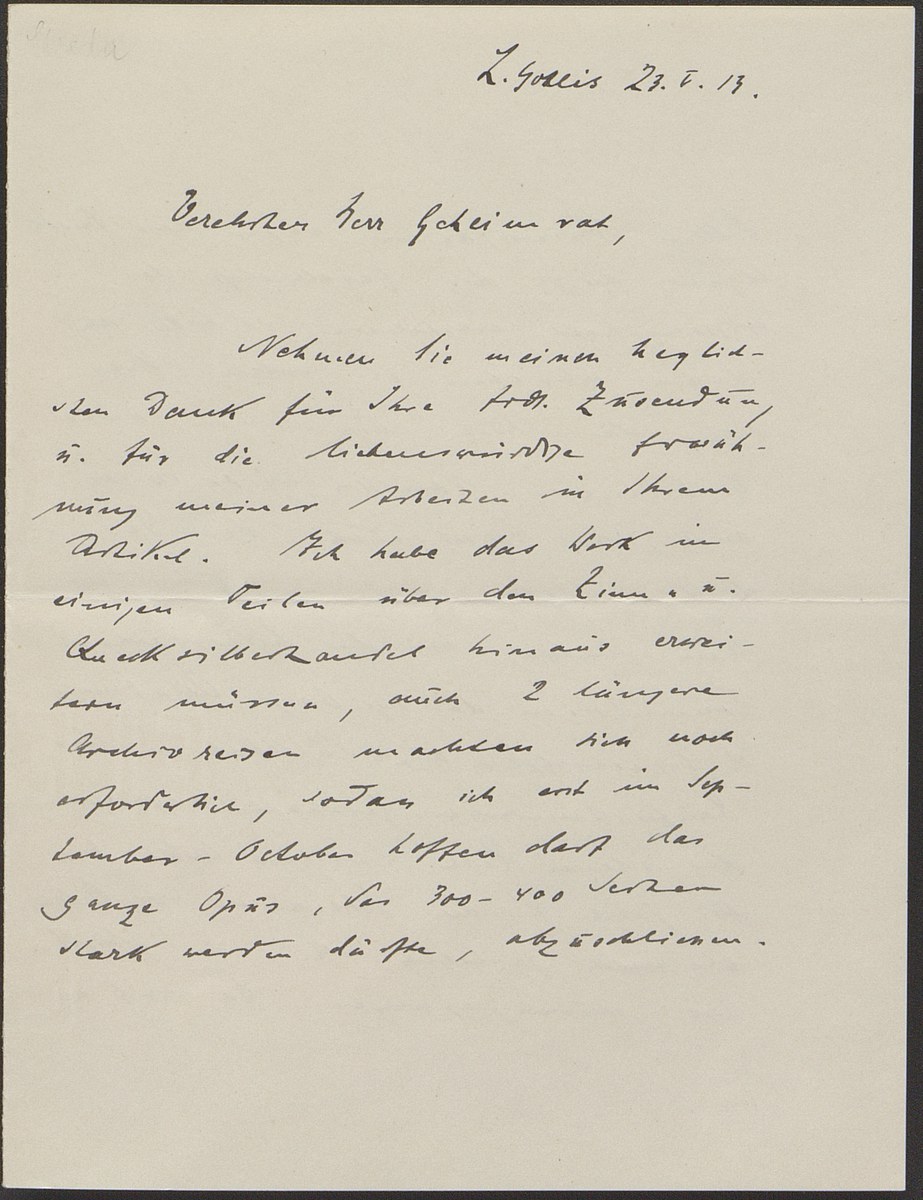 L. Gohlis 23. V. 13.
Verehrter Herr Geheimrat,
Nehmen Sie meinen herzlich-
sten Dank für Ihre frdl. Zusendung
u. für die liebenswürdige Erwäh-
nung meiner Arbeiten in Ihrem
Artikel. Ich habe das Werk in
einigen Teilen über den Zinn- u.
Quecksilberhandel hinaus erwei-
tern müssen, auch 2 längere
Archivreisen machten sich noch
erforderlich, sodass ich erst im Sep-
tember - October hoffen darf das
ganze Opus, das 300-400 Seiten
stark werden dürfte, abzuschliessen.